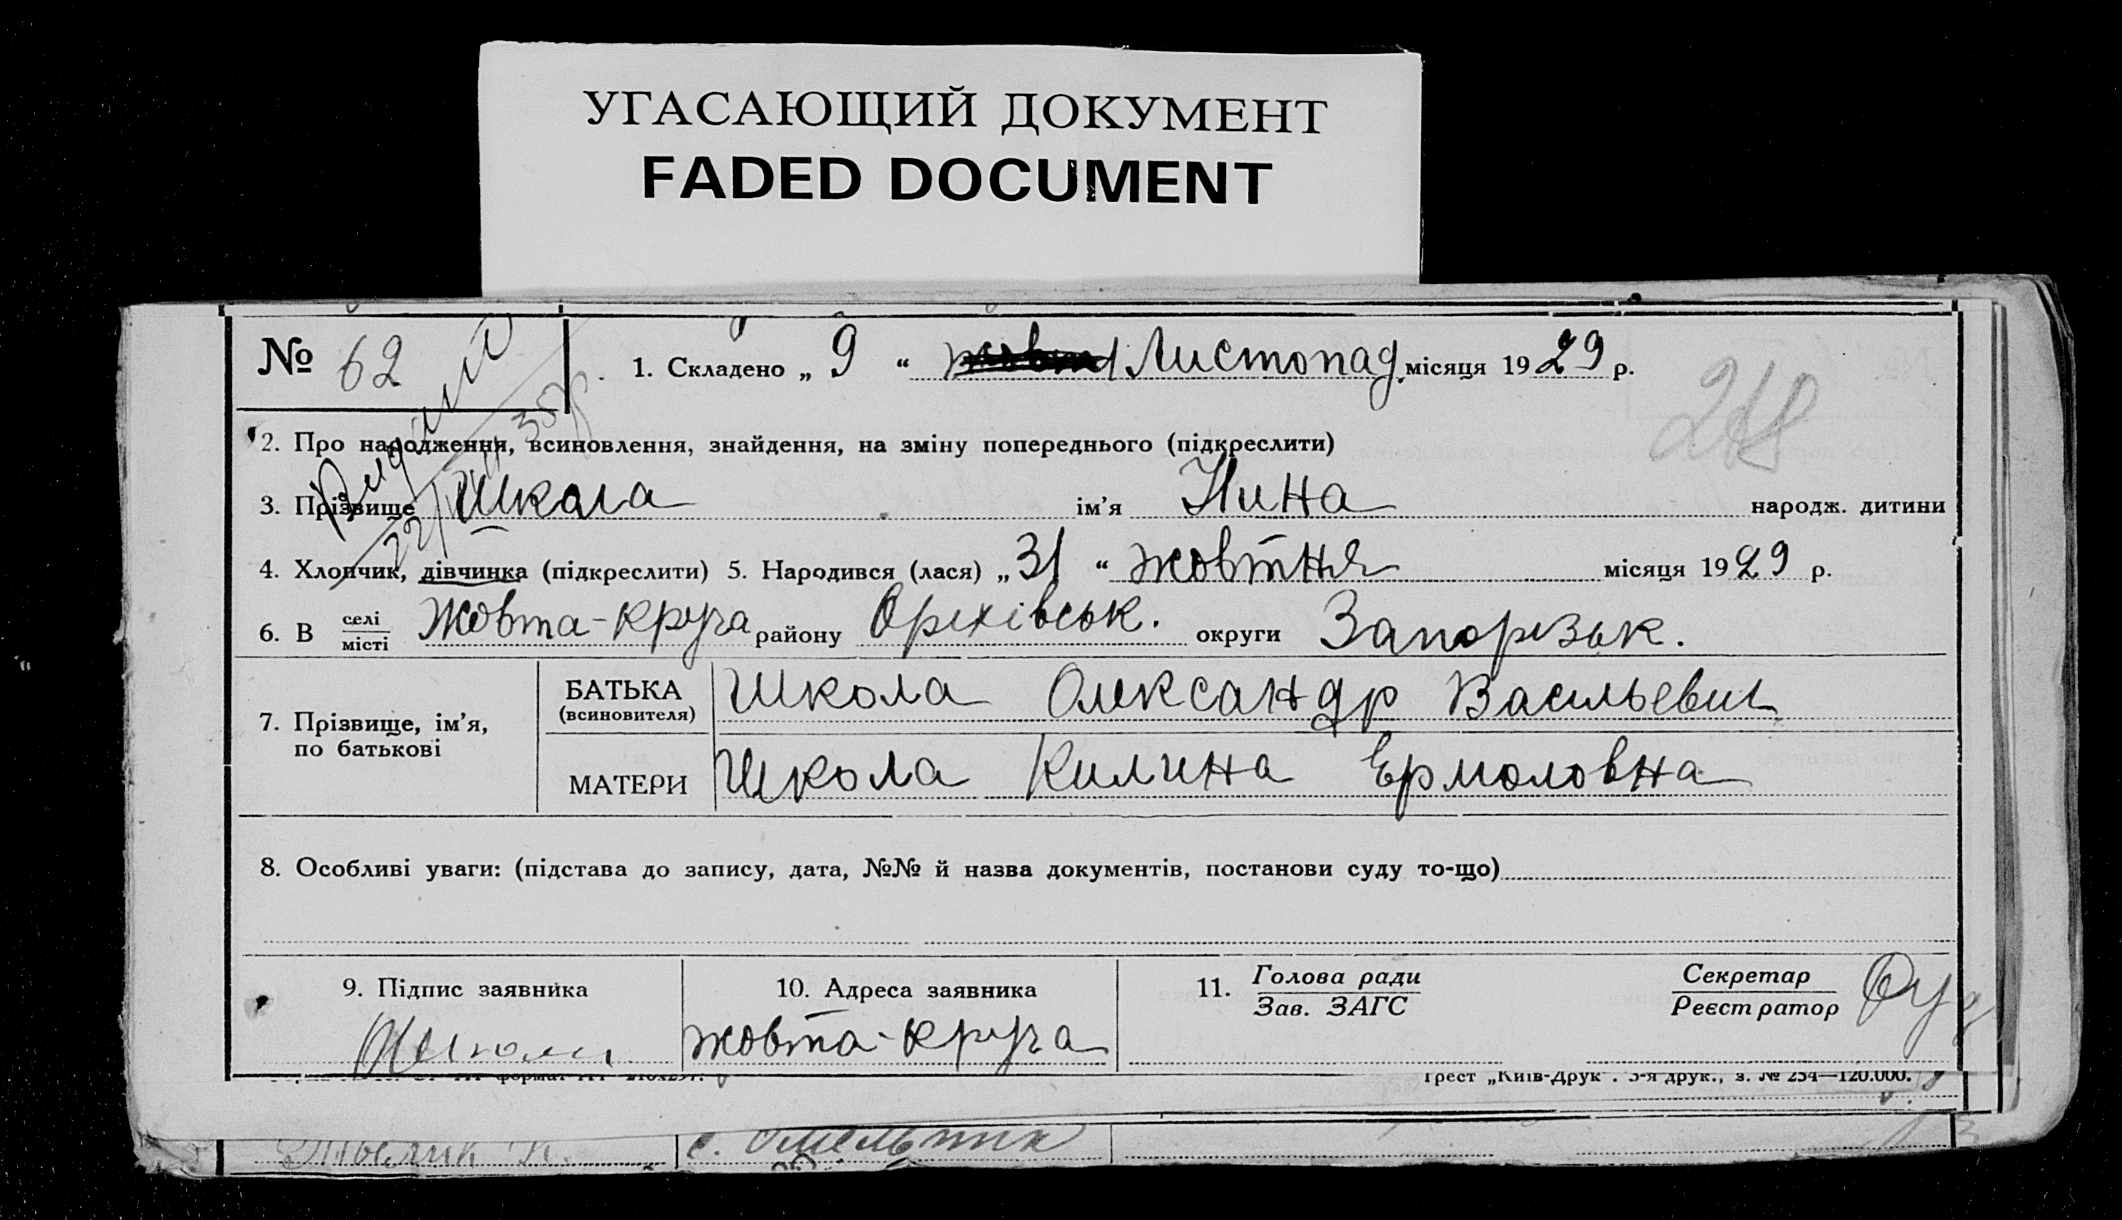 УГАСАЮЩИЙ ДОКУМЕНТ
FADED DOCUMENT
№ 62
1. Складено „ 9 “ Листопад. місяця 1929 р.
218
2. Про народження, всиновлення, знайдення, на зміну попереднього (підкреслити)
3. Прізвище Школа ім’я Нина народж. дитини
4. Хлопчик, дівчинка (підкреслити) 5. Народився (лася) „ 31 “ жовтня місяця 1929 р.
6. В селі місті Жовта-круча району Оріхівськ. округи Запорізьк.
7. Прізвище, ім’я, по батькові
БАТЬКА (всиновителя) Школа Олександр Васильевич
МАТЕРИ Школа Килина Ермоловна
8. Особливі уваги: (підстава до запису, дата, №№ й назва документів, постанови суду то-що)
9. Підпис заявника
10. Адреса заявника
жовта-круча
11. Голова ради
Зав. ЗАГС
Секретар
Реєстратор
Трест „Київ-Друк“. 3-я друк., з. № 254—120.000.
с. Омельник